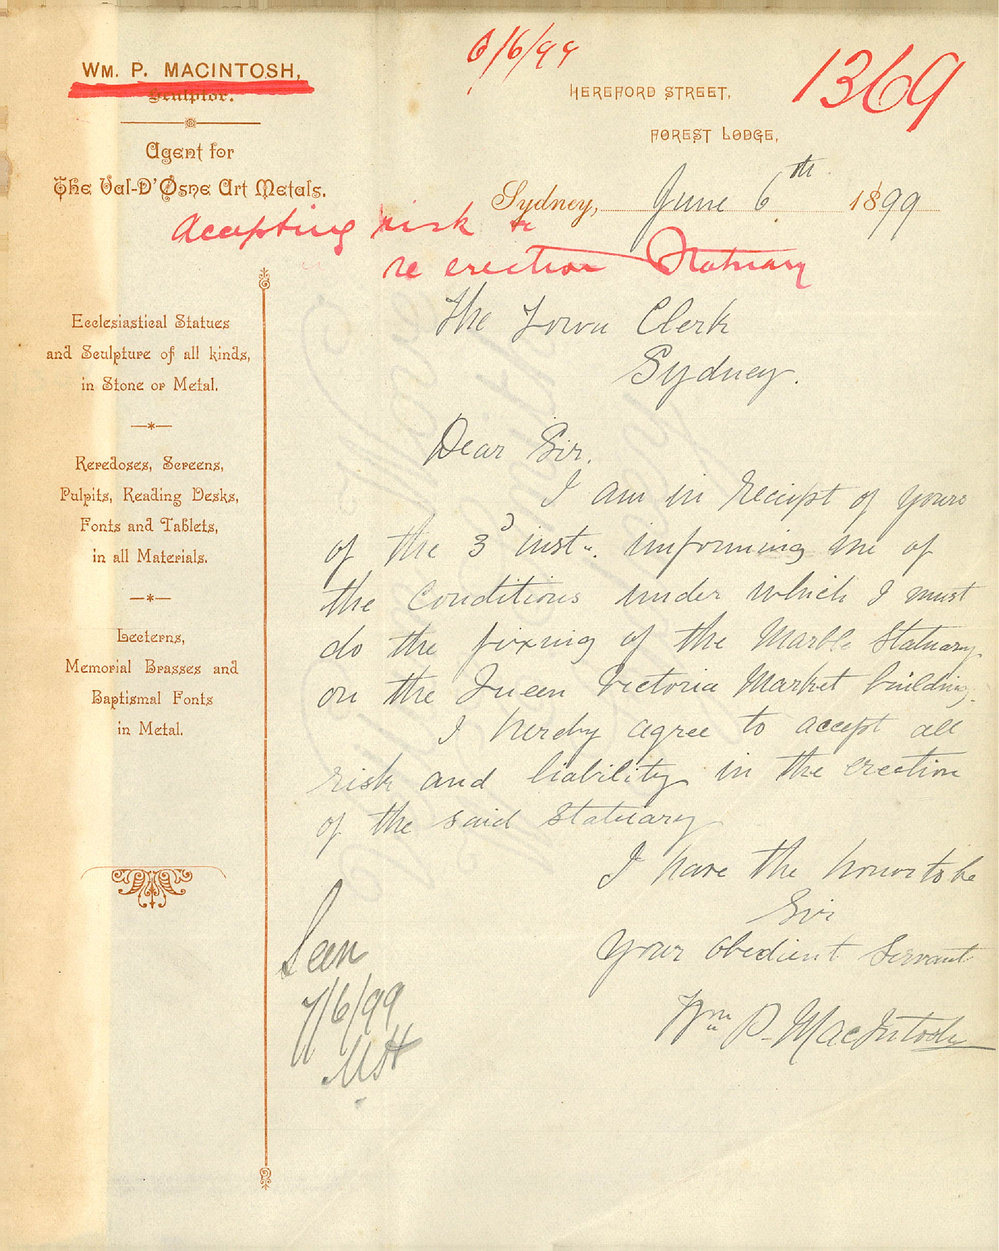 6/6/99
1369
WM. P. MACINTOSH,
Sculptor.
Agent for
The Val-D'Osne Art Metals.
HEREFORD STREET,
FOREST LODGE,
Sydney, June 6th 1899
Accepting risk &c
re erection Statuary
Ecclesiastical Statues
and Sculpture of all kinds,
in Stone or Metal.
Reredoses, Screens,
Pulpits, Reading Desks,
Fonts and Tablets,
in all Materials.
Lecterns,
Memorial Brasses and
Baptismal Fonts
in Metal.
The Town Clerk
Sydney.
Dear Sir.
I am in receipt of yours
of the 3d inst. informing me of
the Conditions under which I must
do the fixing of the Marble Statuary
on the Queen Victoria Market building.
I hereby agree to accept all
risk and liability in the erection
of the said Statuary
I have the honor to be
Sir
Your obedient Servant
Wm P. MacIntosh
Seen
7/6/99